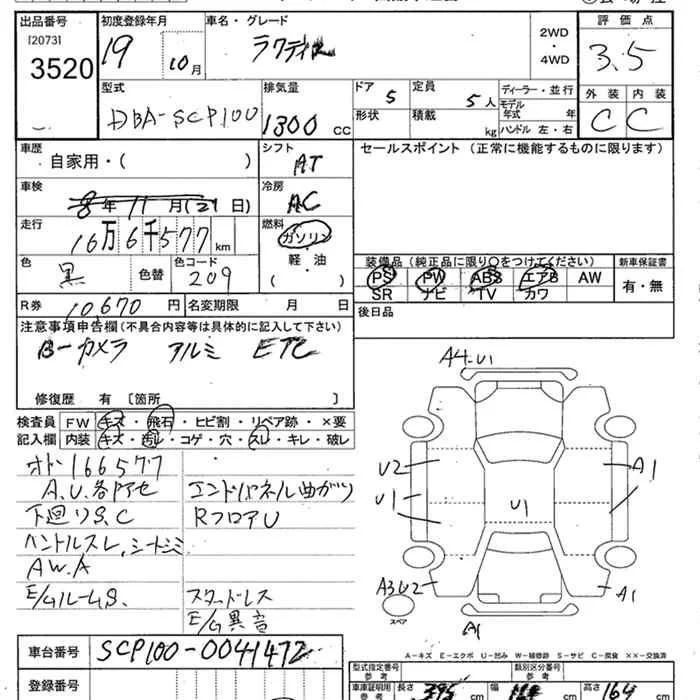 出品番号 初度登録年月 車名・グレード 評価点
[2073] 19 ラクティス 2WD
3520 10月 ・ 4WD 3.5
型式 排気量 ドア 5 定員 5人 ディーラー・並行 外装 内装
DBA-SCP100 1300cc 形状 積載 kg モデル年式 年 C C
ハンドル 左・右
車歴 シフト セールスポイント(正常に機能するものに限ります)
自家用・( ) AT
車検 冷房
8年11月(21日) AC
走行 燃料
16万6千577km ガソリン
色 色替 色コード 軽・油 装備品(純正品に限り○をつけてください) 新車保証書
黒 209 ( ) PS PW ABS エアB AW 有・無
SR ナビ TV カワ
R券 10,670円 名変期限 月 日 後日品
注意事項申告欄(不具合内容等は具体的に記入して下さい)
Bーカメラ アルミ ETC
修復歴 有〔箇所 〕
検査員 FW キズ・飛石・ヒビ割・リペア跡・×要
記入欄 内装 キズ・汚レ・コゲ・穴・スレ・キレ・破レ
オドー166577
A.U.各アセ エンドパネル曲がり
下廻りS.C RフロアU
ハンドルスレ、シートシミ
AW.A
E/GルームS. スタッドレス
E/G異音
A4-U1
U2 A1
U1 U1
A3U2 A1
スペア A1
A-キズ E-エクボ U-凹み W-補修跡 S-サビ C-腐食 XX-交換済
車台番号 SCP100-0041472
型式指定番号 類別区分番号
登録番号 車庫証明用参考 長さ 395cm 幅 高さ 164
参考